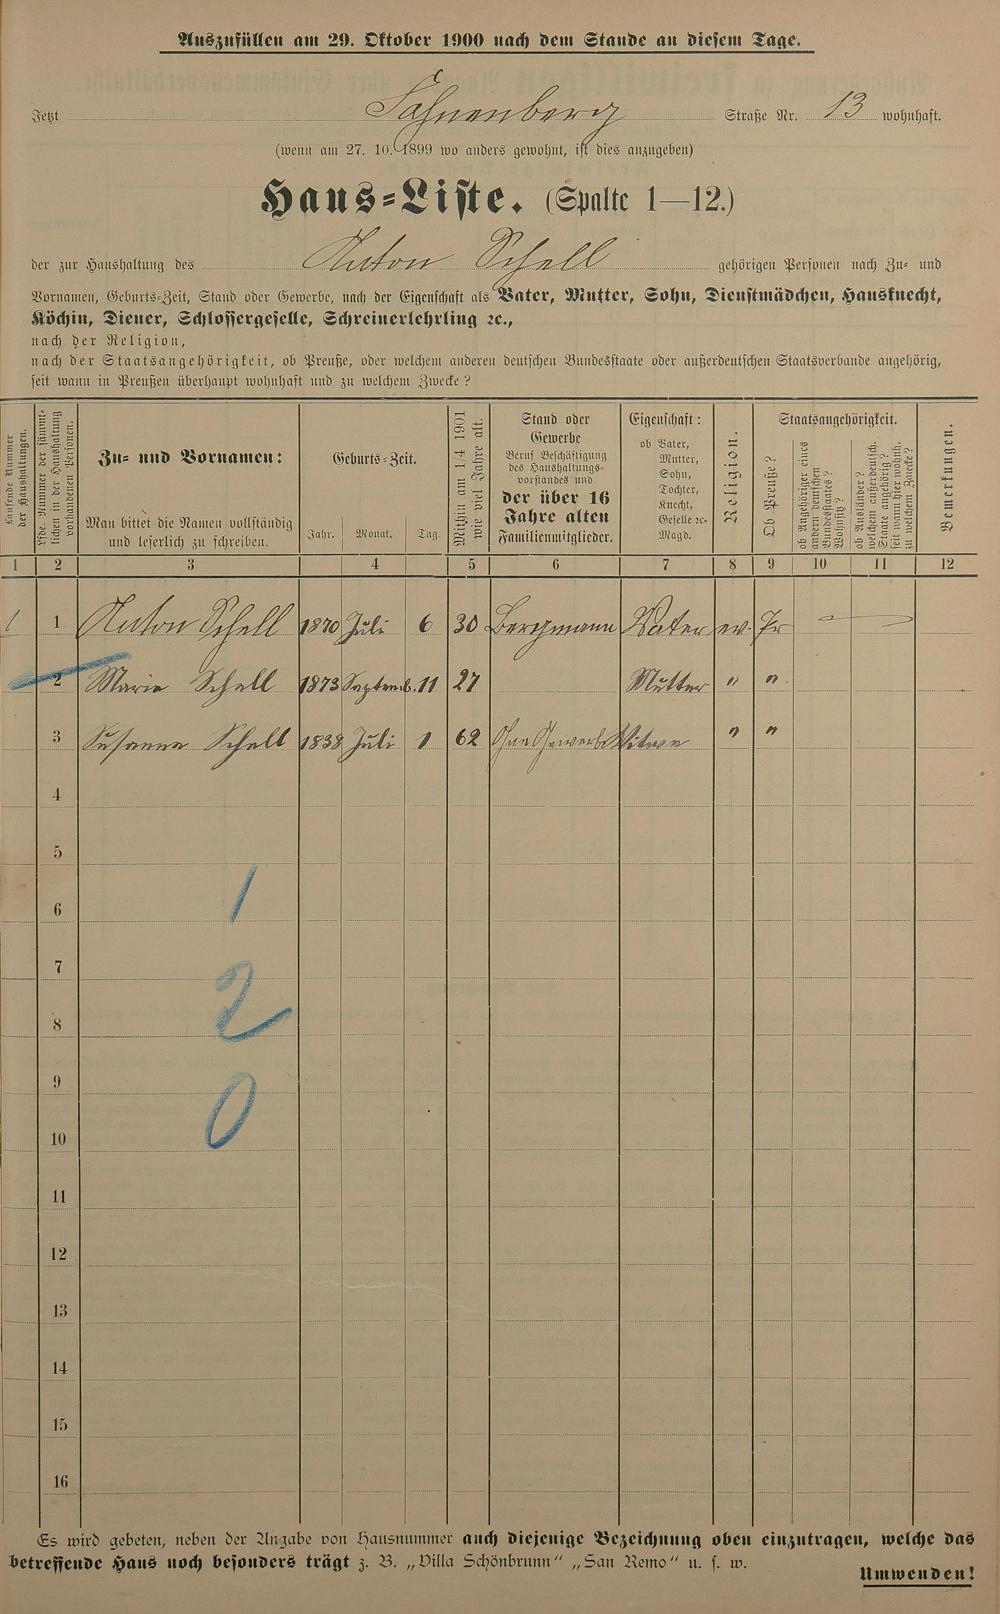 Auszufüllen am 29. Oktober 1900 nach dem Stande an diesem Tage.
Jetzt Straße Nr. 13 wohnhaft.
(wenn am 27. 10. 1899 wo anders gewohnt, ist dies anzugeben)
Haus-Liste. (Spalte 1—12.)
der zur Haushaltung des Anton Schell gehörigen Personen nach Zu- und
Vornamen, Geburts-Zeit, Stand oder Gewerbe, nach der Eigenschaft als Vater, Mutter, Sohn, Dienstmädchen, Hausknecht,
Köchin, Diener, Schlossergeselle, Schreinerlehrling ꝛc.,
nach der Religion,
nach der Staatsangehörigkeit, ob Preuße, oder welchem anderen deutschen Bundesstaate oder außerdeutschen Staatsverbande angehörig,
seit wann in Preußen überhaupt wohnhaft und zu welchem Zwecke?
Laufende Nummer
der Haushaltungen.
Lfde. Nummer der sämmt-
lichen in der Haushaltung
vorhandenen Personen.
Zu- und Vornamen:
Man bittet die Namen vollständig
und leserlich zu schreiben.
Geburts-Zeit.
Jahr. Monat. Tag.
Mithin am 1/4 1901
wie viel Jahre alt.
Stand oder
Gewerbe
Beruf Beschäftigung
des Haushaltungs-
vorstandes und
der über 16
Jahre alten
Familienmitglieder.
Eigenschaft:
ob Vater,
Mutter,
Sohn,
Tochter,
Knecht,
Geselle ꝛc.
Magd.
Religion.
Staatsangehörigkeit.
Ob Preuße?
ob Angehöriger eines
andern deutschen
Bundesstaates?
Wohnsitz?
ob Ausländer?
welchem außerdeutsch.
Staate angehörig?
seit wann hier wohnh.
zu welchem Zwecke?
Bemerkungen.
1 2 3 4 5 6 7 8 9 10 11 12
1 1 Anton Schell 1870 Juli 6 30 Bergmann Vater ev. Pr
2 Marie Schell 1873 Septemb. 11 27 Mutter " "
3 Susanna Schell 1838 Juli 1 62 Ohne Gewerbe Witwe " "
4
5
6 1
7
8 2
9
10 0
11
12
13
14
15
16
Es wird gebeten, neben der Angabe von Hausnummer auch diejenige Bezeichnung oben einzutragen, welche das
betreffende Haus noch besonders trägt z. B. „Villa Schönbrunn" „San Remo" u. s. w.
Umwenden!